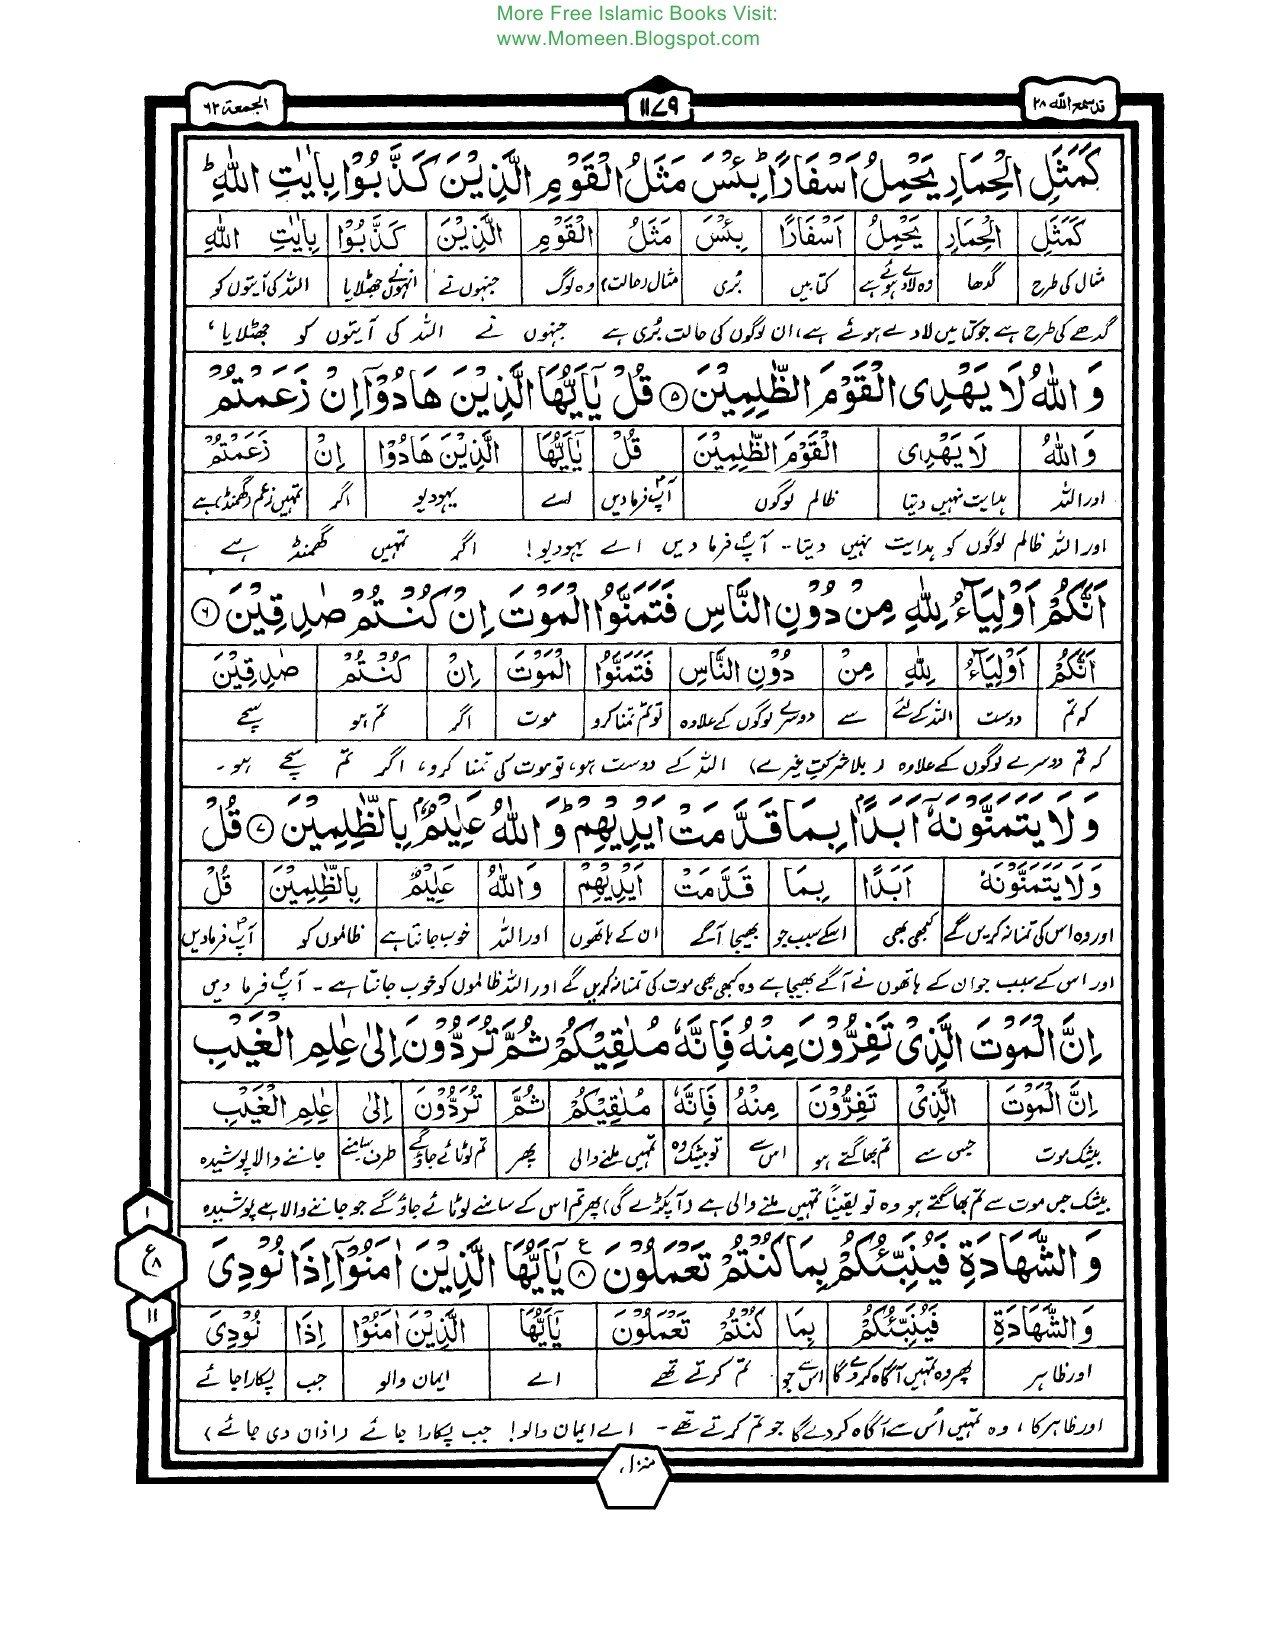 More Free Islamic Books Visit:
www.Momeen.Blogspot.com
قد سمع الله ۲۸ ۱۱۷۹ الجمعة ۶۲
كَمَثَلِ الْحِمَارِ يَحْمِلُ اَسْفَارًا ؕ بِئْسَ مَثَلُ الْقَوْمِ الَّذِيْنَ كَذَّبُوْا بِاٰيٰتِ اللّٰهِ ؕ
كَمَثَلِ الْحِمَارِ يَحْمِلُ اَسْفَارًا بِئْسَ مَثَلُ الْقَوْمِ الَّذِيْنَ كَذَّبُوْا بِاٰيٰتِ اللّٰهِ
مثال کی طرح گدھا وہ لادے ہوئے ہے کتابیں بُری مثال (حالت) وہ لوگ جنہوں نے انہوں نے جھٹلایا اللہ کی آیتوں کو
گدھے کی طرح ہے جو کتابیں لادے ہوئے ہے، ان لوگوں کی حالت بُری ہے جنہوں نے اللہ کی آیتوں کو جھٹلایا،
وَ اللّٰهُ لَا يَهْدِى الْقَوْمَ الظّٰلِمِيْنَ ۵ قُلْ يٰٓاَيُّهَا الَّذِيْنَ هَادُوْٓا اِنْ زَعَمْتُمْ
وَ اللّٰهُ لَا يَهْدِى الْقَوْمَ الظّٰلِمِيْنَ قُلْ يٰٓاَيُّهَا الَّذِيْنَ هَادُوْٓا اِنْ زَعَمْتُمْ
اور اللہ ہدایت نہیں دیتا ظالم لوگوں آپؐ فرما دیں اے یہودیو اگر تمہیں زعم (گھمنڈ) ہے
اور اللہ ظالم لوگوں کو ہدایت نہیں دیتا۔ آپؐ فرما دیں اے یہودیو! اگر تمہیں گھمنڈ ہے
اَنَّكُمْ اَوْلِيَآءُ لِلّٰهِ مِنْ دُوْنِ النَّاسِ فَتَمَنَّوُا الْمَوْتَ اِنْ كُنْتُمْ صٰدِقِيْنَ ۶
اَنَّكُمْ اَوْلِيَآءُ لِلّٰهِ مِنْ دُوْنِ النَّاسِ فَتَمَنَّوُا الْمَوْتَ اِنْ كُنْتُمْ صٰدِقِيْنَ
کہ تم دوست اللہ کے لئے سے دوسرے لوگوں کے علاوہ تو تم تمنا کرو موت اگر تم ہو سچے
کہ تم دوسرے لوگوں کے علاوہ (بلا شرکتِ غیرے) اللہ کے دوست ہو، تو موت کی تمنا کرو، اگر تم سچے ہو۔
وَ لَا يَتَمَنَّوْنَهٗٓ اَبَدًۢا بِمَا قَدَّمَتْ اَيْدِيْهِمْ ؕ وَ اللّٰهُ عَلِيْمٌۢ بِالظّٰلِمِيْنَ ۷ قُلْ
وَ لَا يَتَمَنَّوْنَهٗ اَبَدًا بِمَا قَدَّمَتْ اَيْدِيْهِمْ وَ اللّٰهُ عَلِيْمٌ بِالظّٰلِمِيْنَ قُلْ
اور وہ اس کی تمنا نہ کریں گے کبھی بھی اسکے سبب جو بھیجا آگے ان کے ہاتھوں اور اللہ خوب جانتا ہے ظالموں کو آپؐ فرما دیں
اور اس کے سبب جو ان کے ہاتھوں نے آگے بھیجا ہے وہ کبھی بھی موت کی تمنا نہ کریں گے اور اللہ ظالموں کو خوب جانتا ہے۔ آپؐ فرما دیں
اِنَّ الْمَوْتَ الَّذِىْ تَفِرُّوْنَ مِنْهُ فَاِنَّهٗ مُلٰقِيْكُمْ ثُمَّ تُرَدُّوْنَ اِلٰى عٰلِمِ الْغَيْبِ
اِنَّ الْمَوْتَ الَّذِىْ تَفِرُّوْنَ مِنْهُ فَاِنَّهٗ مُلٰقِيْكُمْ ثُمَّ تُرَدُّوْنَ اِلٰى عٰلِمِ الْغَيْبِ
بیشک موت جس سے تم بھاگتے ہو اس سے تو بیشک وہ تمہیں ملنے والی پھر تم لوٹائے جاؤ گے طرف سامنے جاننے والا پوشیدہ
بیشک جس موت سے تم بھاگتے ہو وہ تو یقیناً تمہیں ملنے والی ہے (آ پکڑے گی) پھر تم اس کے سامنے لوٹائے جاؤ گے جو جاننے والا ہے پوشیدہ
وَ الشَّهَادَةِ فَيُنَبِّئُكُمْ بِمَا كُنْتُمْ تَعْمَلُوْنَ ۸ ع يٰٓاَيُّهَا الَّذِيْنَ اٰمَنُوْٓا اِذَا نُوْدِىَ
وَ الشَّهَادَةِ فَيُنَبِّئُكُمْ بِمَا كُنْتُمْ تَعْمَلُوْنَ يٰٓاَيُّهَا الَّذِيْنَ اٰمَنُوْٓا اِذَا نُوْدِىَ
اور ظاہر پھر وہ تمہیں آگاہ کر دے گا اس سے جو تم کرتے تھے اے ایمان والو جب پکارا جائے
اور ظاہر کا، وہ تمہیں اُس سے آگاہ کر دے گا جو تم کرتے تھے۔ اے ایمان والو! جب پکارا جائے (اذان دی جائے)
۱
ع ۸
۱۱
منزل